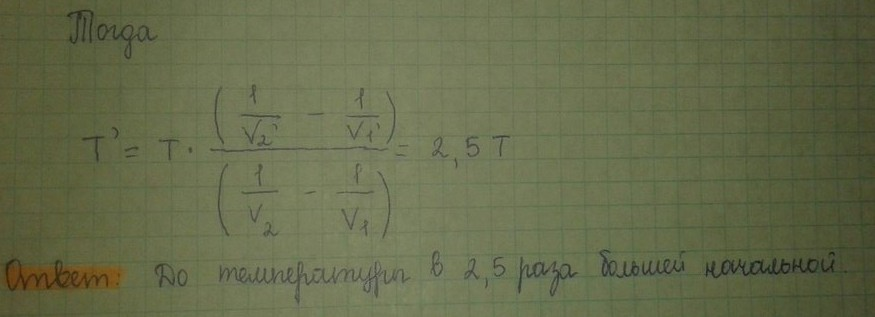 Тогда
T' = T · (1/V₂' − 1/V₁') / (1/V₂ − 1/V₁) = 2,5 T
Ответ: До температуры в 2,5 раза большей начальной.